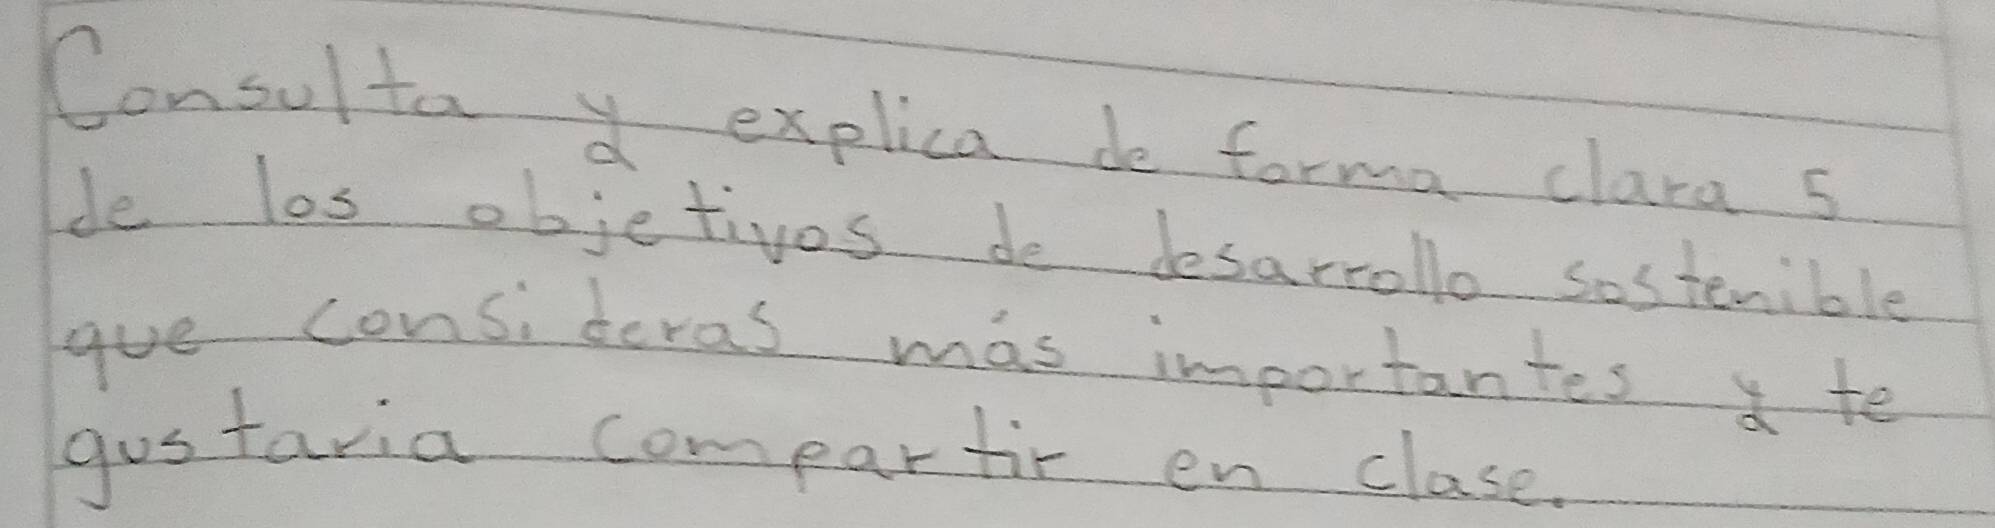 Consulta y explica de forma clara 5
de los objetivos de desarrollo sostenible
que consideras más importantes y te
gustaria compartir en clase.